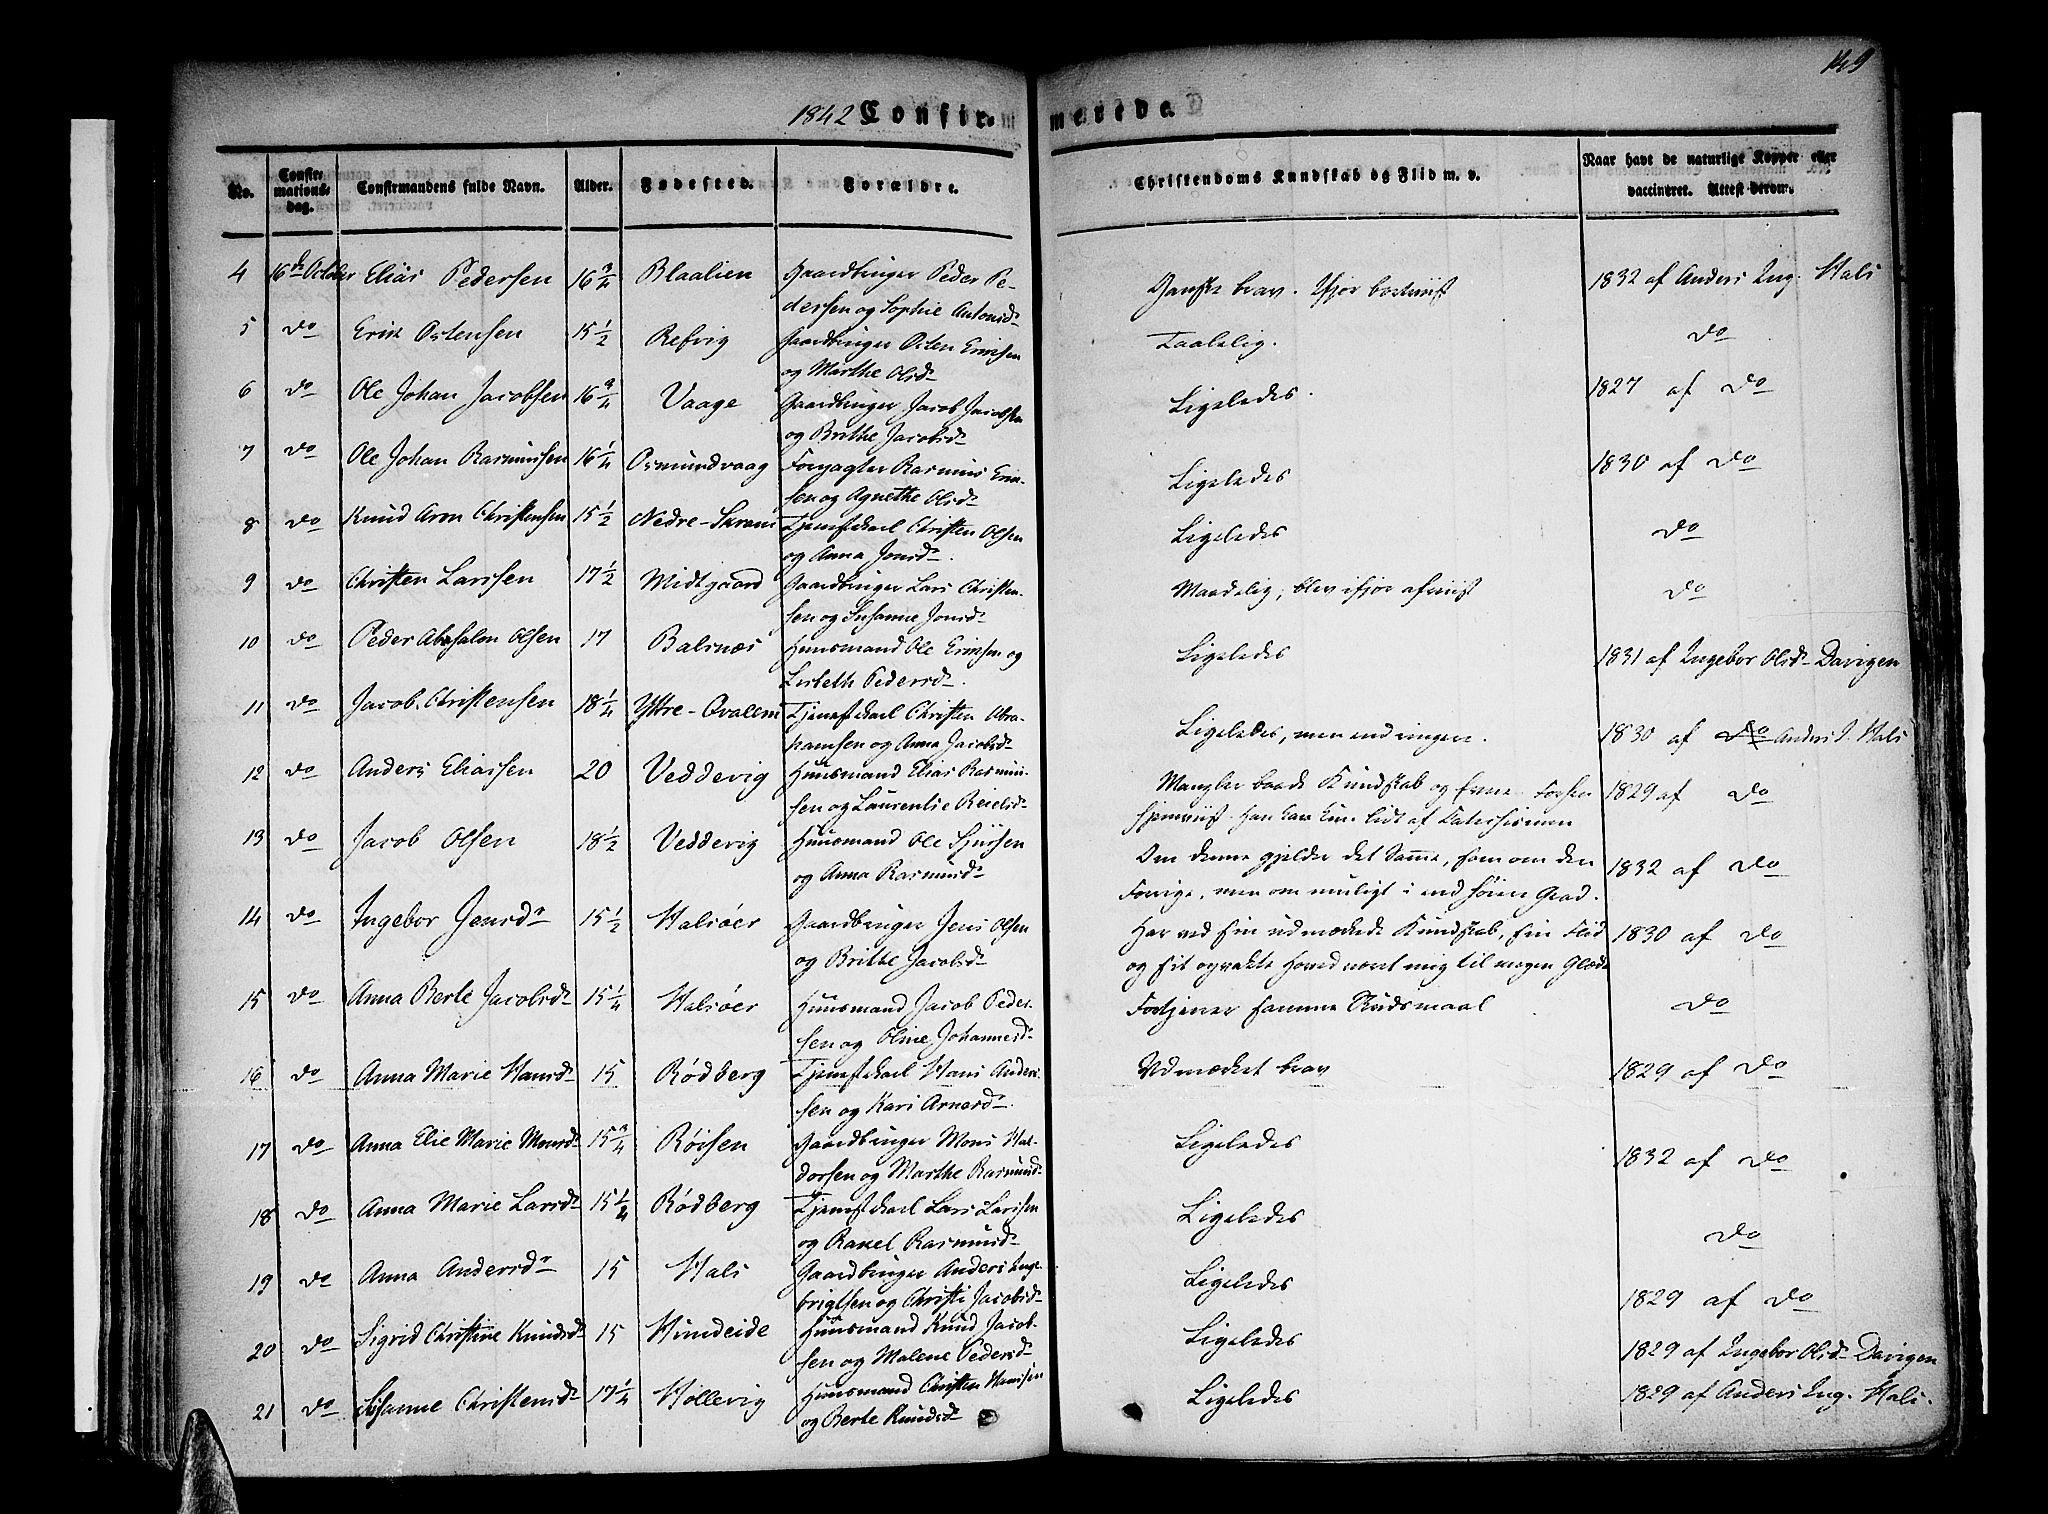 149
1842 Confirmerede.
No. Confirmationsdag. Confirmandens fulde Navn. Alder. Fødested. Forældre. Christendoms Kundskab og Flid m. v. Naar havt de naturlige Kopper eller vaccineret. Attest derom.
4 16de October Elias Pedersen 16 3/4 Blaalien Gaardbruger Peder Pe- Ganske brav. 1832 af Anders Ing. Hals
dersen og Sophie Antonsd.
5 do Erik Ostensen 15 1/2 Refvig Gaardbruger Osten Ericsen Taalelig. do
og Marthe Olsd.
6 do Ole Johan Jacobsen 16 3/4 Vaage Gaardbruger Jacob Jacobsen Ligeledes. 1827 af do
og Brithe Jacobsd.
7 do Ole Johan Rasmussen 16 1/4 Osmundvaag Forpagter Rasmus Eric- Ligeledes 1830 af do
sen og Agnethe Olsd.
8 do Knud Aron Christensen 15 1/2 Nedre-Skram Tjenestekarl Christen Olsen Ligeledes do
og Anna Jonsd.
9 do Christen Larssen 17 1/2 Midtgaard Gaardbruger Lars Christen- Maadelig; blev ifjor afviist do
sen og Susanne Jonsd.
10 do Peder Abesalon Olsen 17 Balsnæs Huusmand Ole Ericsen og Ligeledes 1831 af Ingebor Olsd. Davigen
Lisbeth Pedersd.
11 do Jacob Christensen 18 1/4 Yttre-Qvalem Tjenestekarl Christen Abra- Ligeledes, men end ringere. 1830 af do Anders I. Hals
hamsen og Anna Jacobsd.
12 do Anders Eliassen 20 Veddevig Huusmand Elias Rasmus- Mangler baade Kundskab og Evne. 1829 af do
sen og Laurentse Reielsd. Han kan kun lidt af Catechismen
13 do Jacob Olsen 18 1/2 Veddevig Huusmand Ole Sjursen Om denne gjelder det Samme, som om den 1832 af do
og Anna Rasmusd. Forrige, men om muligt i end høiere Grad.
14 do Ingebor Jensd. 15 1/2 Halsøer Gaardbruger Jens Olsen Har ved sin udmærkede Kundskab, sin Flid 1830 af do
og Brithe Jacobsd. og sit opvakte Hoved været mig til megen Glæde
15 do Anna Berte Jacobsd. 15 1/4 Halsøer Huusmand Jacob Peder- Fortjener samme Skudsmaal do
sen og Oline Johannesd.
16 do Anna Marie Hansd. 15 Rødberg Tjenestekarl Hans Anders- Udmærket brav 1829 af do
sen og Kari Arnesd.
17 do Anna Elie Marie Monsd. 15 3/4 Røisen Gaardbruger Mons Hal- Ligeledes 1832 af do
dorsen og Marthe Rasmusd.
18 do Anna Marie Larsd. 15 1/4 Rødberg Tjenestekarl Lars Larssen Ligeledes do
og Rakel Rasmusd.
19 do Anna Andersd. 15 Hals Gaardbruger Anders Inge- Ligeledes 1829 af do
brigtsen og Christi Jacobsd.
20 do Sigrid Christine Knudsd. 15 Hundeide Huusmand Knud Jacob- Ligeledes 1829 af Ingebor Olsd. Davigen
sen og Malene Pedersd.
21 do Susanne Christensd. 17 1/4 Hollevig Huusmand Christen Hansen Ligeledes 1829 af Anders Ing. Hals.
og Berte Knudsd.